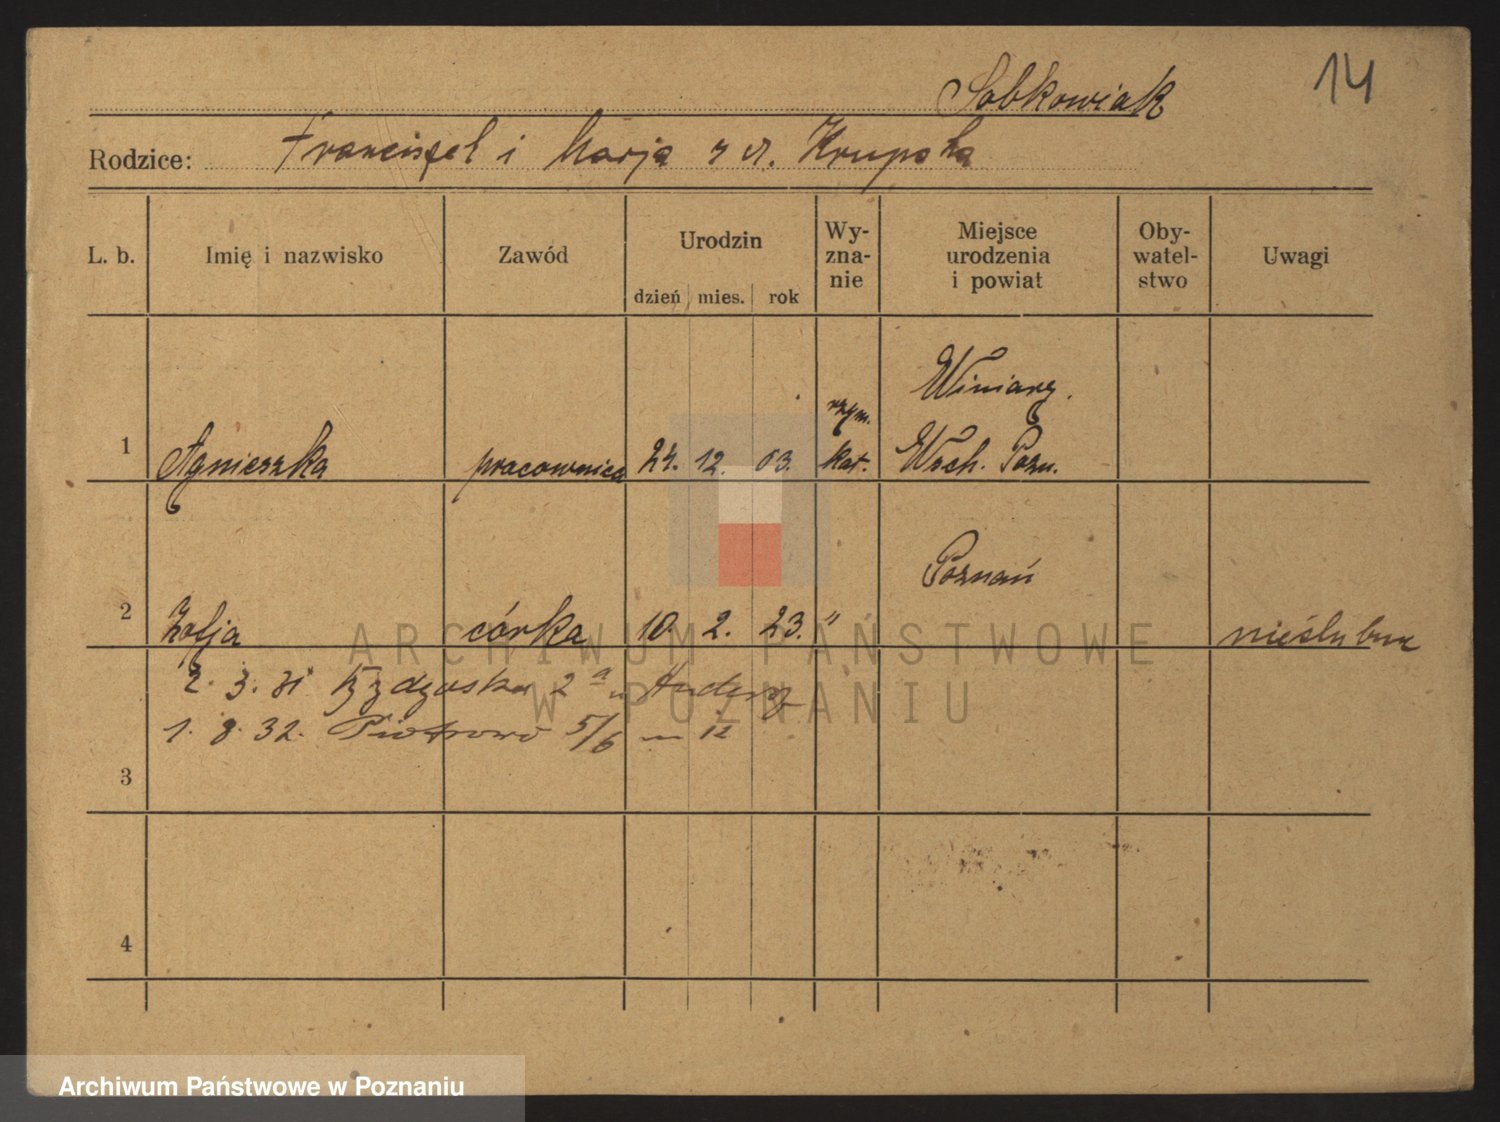 14
Sobkowiak
Rodzice: Franciszek i Marja z d. Krupska
L. b. Imię i nazwisko Zawód Urodzin dzień mies. rok Wy-zna-nie Miejsce urodzenia i powiat Oby-watel-stwo Uwagi
Winiary.
1 Agnieszka pracownica 24. 12. 03. rzym. kat. Wsch. Pozn.
Poznań
2 Zofja córka 10. 2. 23. " nieślubna
2. 3. 31 2a u
1. 8. 32. Piotrowo 5/6 m 12
3
4
ARCHIWUM PAŃSTWOWE
W POZNANIU
Archiwum Państwowe w Poznaniu